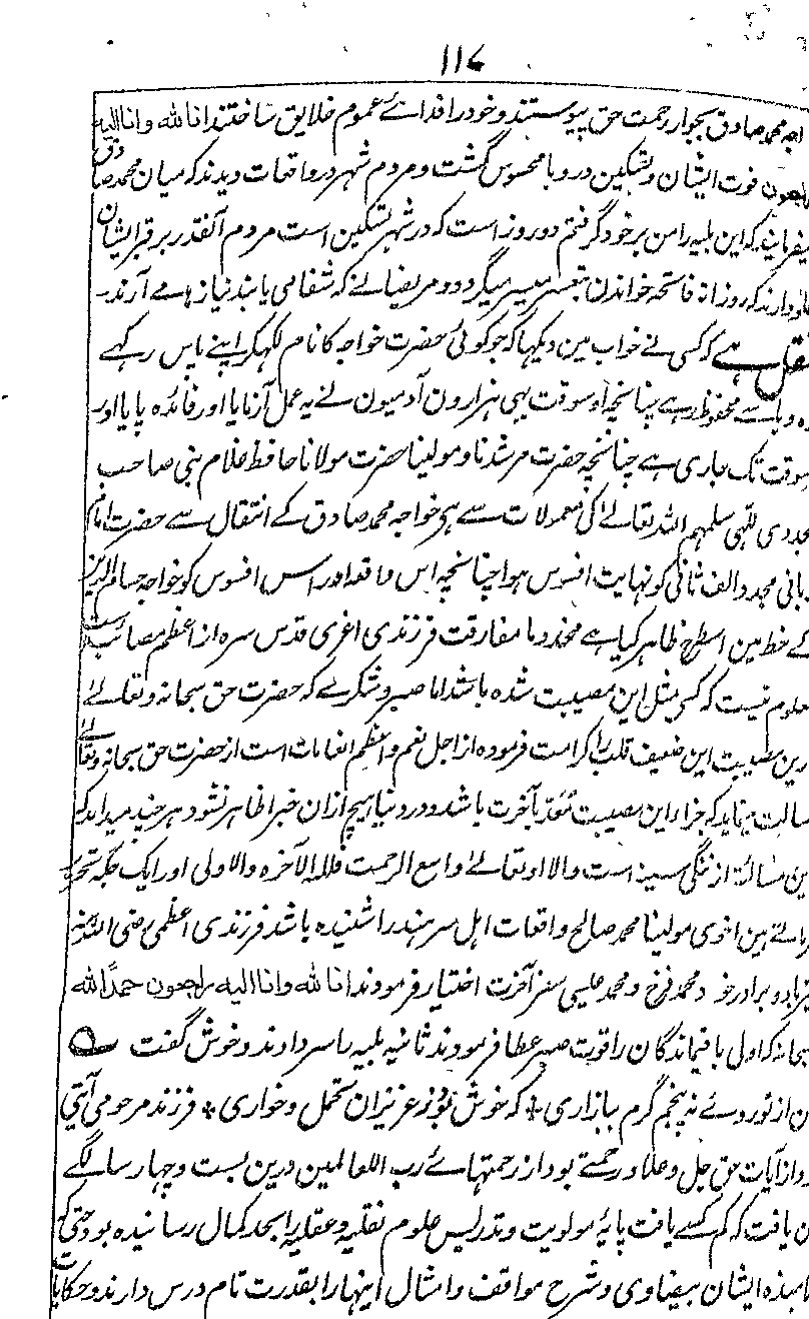 ۱۱۷
اجہ محمد صادق بجوار رحمت حق پیوستند و خود را فدائے عموم خلایق ساختند انا للہ وانا الیہ
راجعون فوت ایشان و تسکین در وبا محسوس گشت و مردم شہر در واقعات دیدند کہ میان محمد صادق
میفرمایند کہ این بلیہ را من بر خود گرفتم دو روز است کہ در شہر تسکین است مردم آنقدر بر قبر ایشان
دارند کہ روزانہ فاتحہ خواندن بتعسر میسر میگردد و مریضانے کہ شفا می یابند نیازہا مے آرند۔
نقل ہے کہ کسی نے خواب مین دیکہا کہ جو کوئی حضرت خواجہ کا نام لکہکر اپنے پاس رکہے
وہ وبا سے محفوظ رہے چنانچہ اوسوقت یہی ہزارون آدمیون نے یہ عمل آزمایا اور فائدہ پایا اور
سوقت تک جاری ہے چنانچہ حضرت مرشدنا و مولینا حضرت مولانا حافظ غلام نبی صاحب
مجددی للہی سلمہم اللہ تعالےٰ کی معمولات سے ہی خواجہ محمد صادق کے انتقال سے حضرت امام
ربانی مجدد الف ثانی کو نہایت افسوس ہوا چنانچہ اس واقعہ اور اس افسوس کو خواجہ حسام الدین
کے خط مین اسطرح ظاہر کیا ہے مخدوما مفارقت فرزندی اغری قدس سرہ از اعظم مصائب است
معلوم نیست کہ کسی مثل این مصیبت شدہ باشد اما صبر و شکرے کہ حضرت حق سبحانہ و تعالےٰ
درین مصیبت این ضعیف قلب را کرامت فرمودہ از اجل نعم و اعظم انعامات است از حضرت حق سبحانہ وتعالےٰ
سالت مینماید کہ جزاء این مصیبت معد بآخرت باشد و در دنیا ہیچ ازان خبر ظاہر نشود ہر چند میداند کہ
این مسالت از تنگی سینہ است والا او تعالےٰ واسع الرحمت فللہ الآخرہ والاولی اور ایک جگہ تحریر
فرماتے ہین اخوی مولینا محمد صالح واقعات اہل سرہند را شنیدہ باشد فرزندی اعظمی رضی اللہ عنہ
با دو برادر خود محمد فرخ و محمد عیسی سفر آخرت اختیار فرمودند انا للہ وانا الیہ راجعون حمداً للہ
سبحانہ کہ اول باقیماندگان را قوت صبر عطا فرمودند ثانیہ بلیہ را سر دادند و خوش گفت ؎
من از تو روے نہ پیچم گرم بیازاری ٭ کہ خوش بود ز عزیزان تحمل و خواری ٭ فرزند مرحومی آیتی
بود از آیات حق جل و علا و رحمتے بود از رحمتہاے رب العالمین درین بست و چہار سالگے
آن یافت کہ کم کسے یافت پایۂ مولویت و تدریس علوم نقلیہ و عقلیہ را بحد کمال رسانیدہ بود حتی کہ
تلامذہ ایشان بیضاوی و شرح مواقف و امثال اینہا را بقدرت تام درس دارند و حکایات